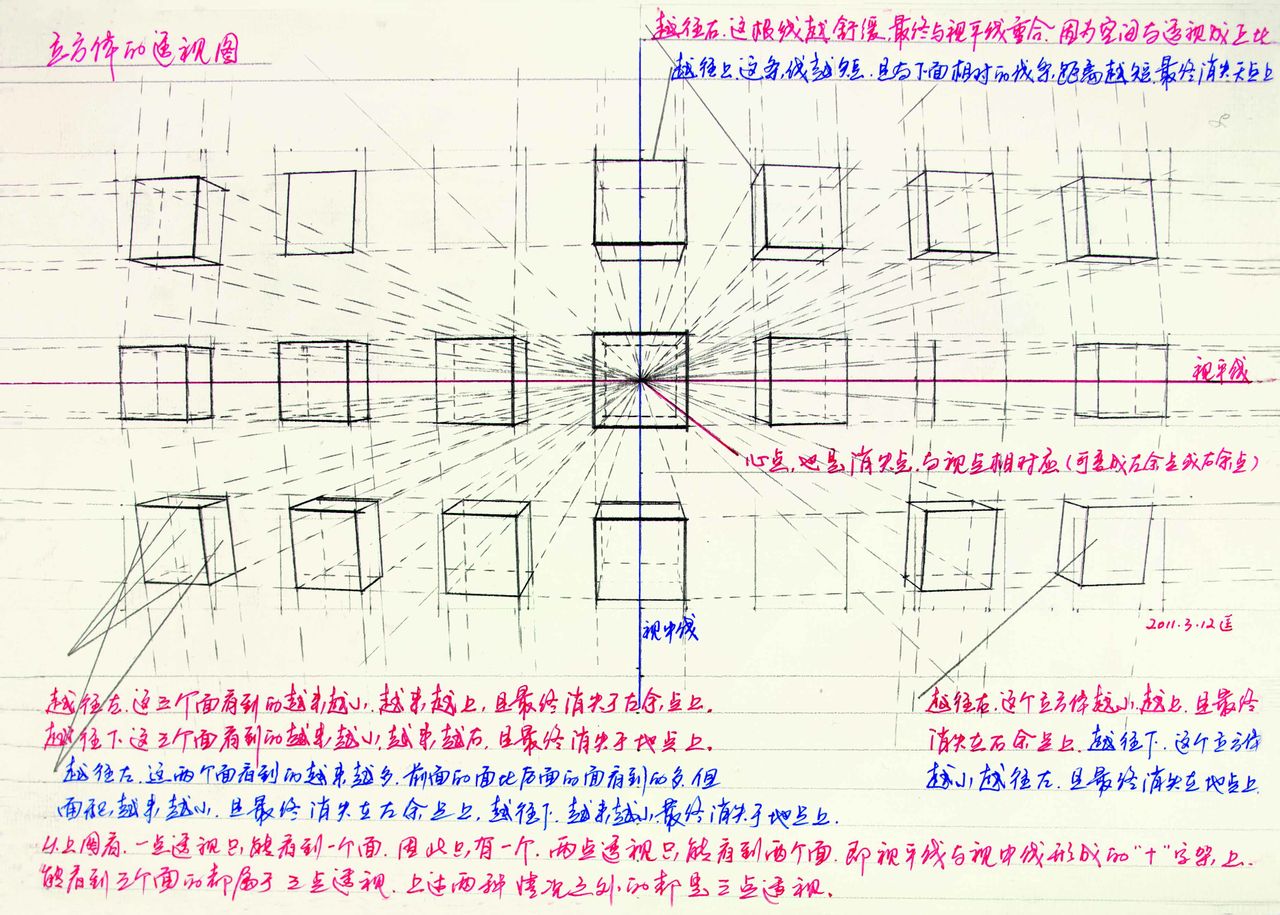 立方体的透视图
越往右.这根线越舒缓.最终与视平线重合.因为空间与透视成正比
越往上这条线越短.且与下面相对的线条,距离越短,最终消失天点上
视平线
心点,也是消失点,与视点相对应(可变成左余点或右余点)
视中线
2011.3.12
越往左.这三个面看到的越来越小.越来越上,且最终消失于左余点上.
越往下这三个面看到的越来越小,越来越右.且最终消失于地点上.
越往左.这两个面看到的越来越多.前面的面比后面的面看到的多.但
面积,越来越小.且最终消失在左余点上,越往下.越来越小,最终消失于地点上.
越往右.这个立方体越小.越上.且最终
消失在右余点上.越往下.这个立方体
越小越往左.且最终消失在地点上
从上图看.一点透视只能看到一个面.因此只有一个.两点透视只能看到两个面.即视平线与视中线形成的"十"字架上.
能看到三个面的都属于三点透视.上述两种情况之外的都是三点透视.